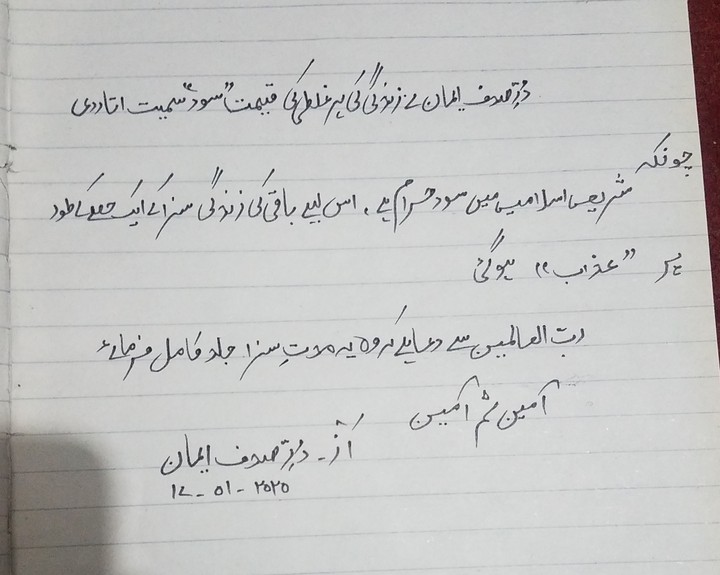 دُرِّ صدف ایمان نے زندگی کی ہر غلطی کی قیمت "سود" سمیت اتاردی
چونکہ
شریعی اسلامیں میں سود حرام ہے، اس لیے باقی کی زندگی سزا کے ایک حصے کے طور
پر "عذاب" ہوگئی
رب العالمین سے دعا ہے کہ وہ یہ مدتِ سزا جلد کامل فرمائے
آمین ثم آمین
از۔ دُرِّ صدف ایمان
12-01-2020